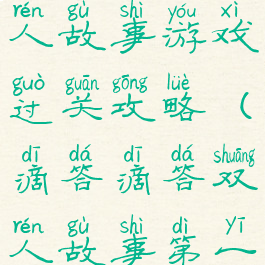 rén gù shì yóu xì
人故事游戏
guò guān gōng lüè
过关攻略（
dī dá dī dá shuāng
滴答滴答双
rén gù shì dì yī
人故事第一